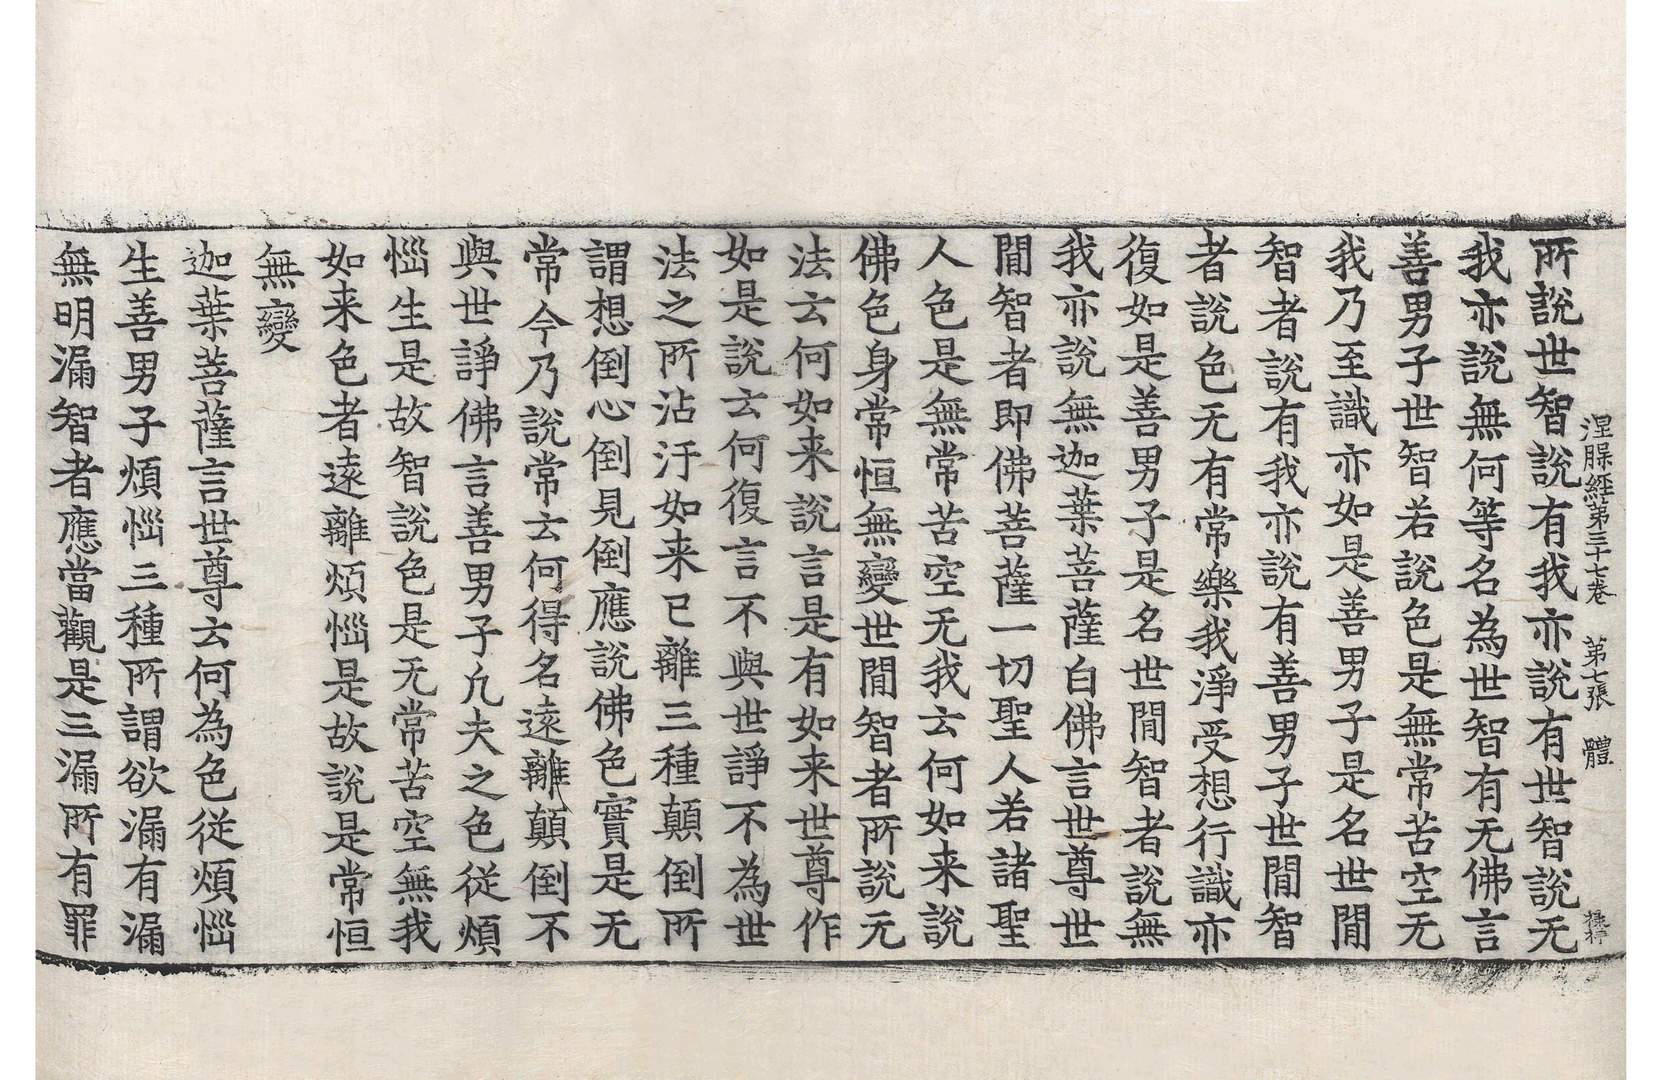 涅脲經第三十七卷 第七張 體
所說世智說有我亦說有世智說无
我亦說無何等名為世智有无佛言
善男子世智若說色是無常苦空无
我乃至識亦如是善男子是名世閒
智者說有我亦說有善男子世閒智
者說色无有常樂我淨受想行識亦
復如是善男子是名世閒智者說無
我亦說無迦葉菩薩白佛言世尊世
閒智者即佛菩薩一切聖人若諸聖
人色是無常苦空无我云何如来說
佛色身常恒無變世閒智者所說无
法云何如来說言是有如来世尊作
如是說云何復言不與世諍不為世
法之所沾汙如来已離三種顛倒所
謂想倒心倒見倒應說佛色實是无
常今乃說常云何得名遠離顛倒不
與世諍佛言善男子凢夫之色従煩
惱生是故智說色是无常苦空無我
如来色者遠離煩惱是故說是常恒
無變
迦葉菩薩言世尊云何為色従煩惱
生善男子煩惱三種所謂欲漏有漏
無明漏智者應當觀是三漏所有罪